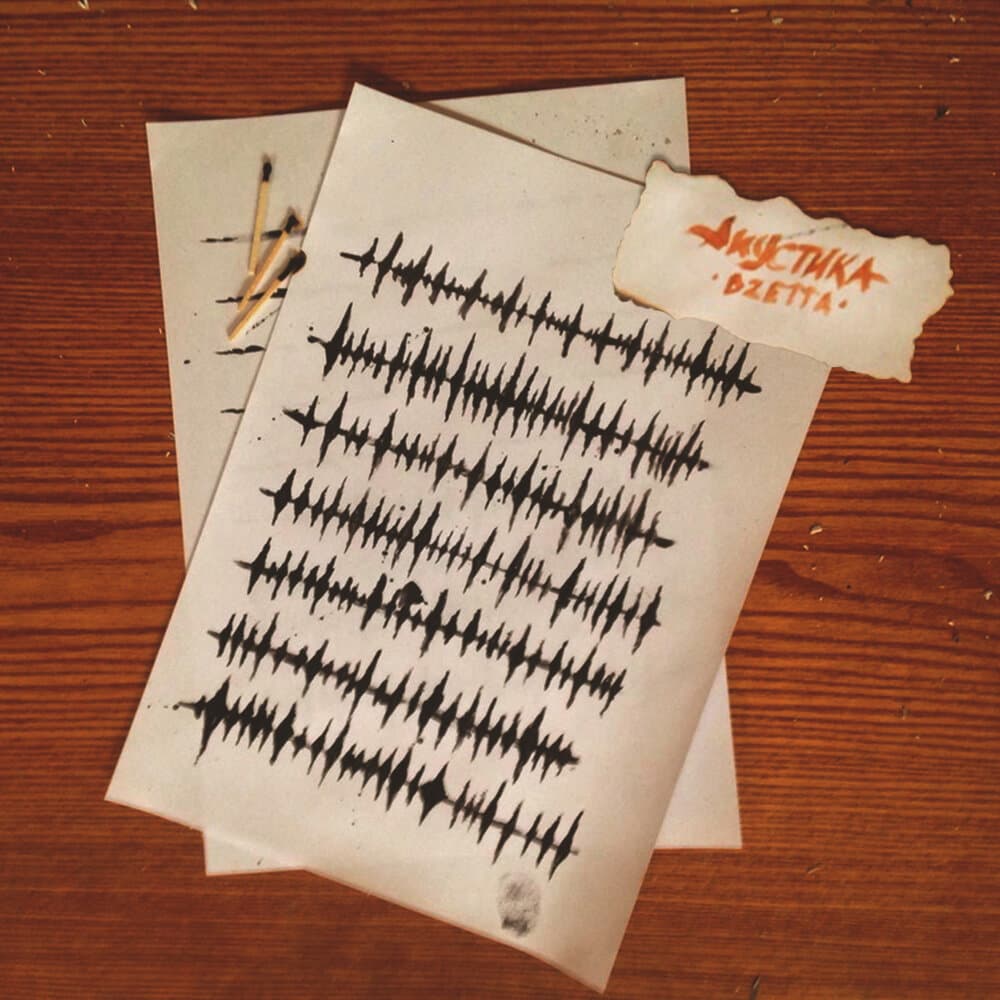 АКУСТИКА
· BZETTA ·